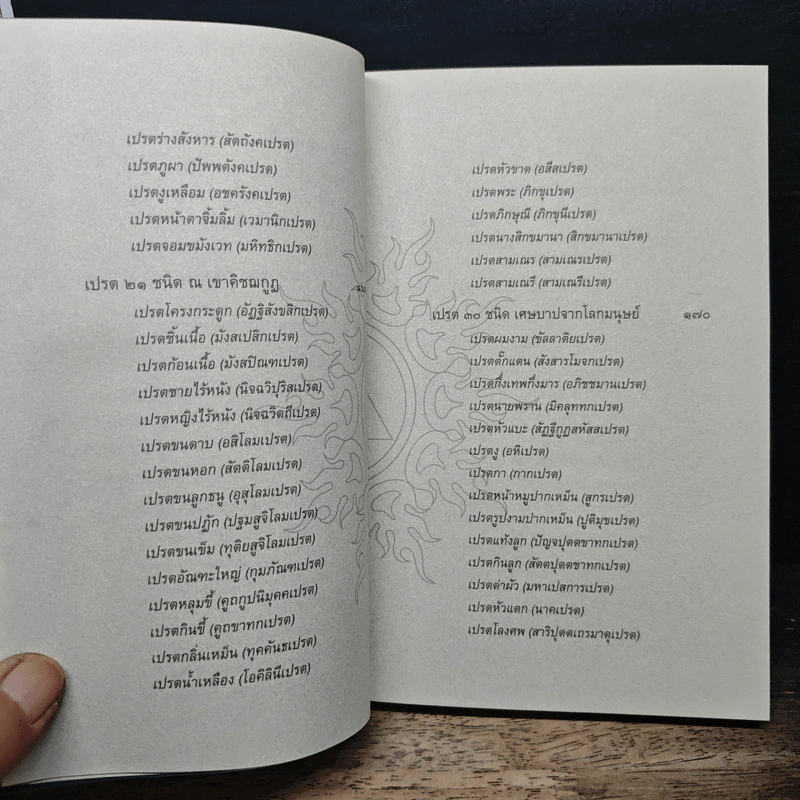 เปรตร่างสังหาร (สัตถังคเปรต)
เปรตภูผา (ปัพพตังคเปรต)
เปรตงูเหลือม (อชครังคเปรต)
เปรตหน้าตาจิ้มลิ้ม (เวมานิกเปรต)
เปรตจอมขมังเวท (มหิทธิกเปรต)
เปรต ๒๑ ชนิด ณ เขาคิชฌกูฏ
เปรตโครงกระดูก (อัฏฐิสังขสิกเปรต)
เปรตชิ้นเนื้อ (มังสเปสิกเปรต)
เปรตก้อนเนื้อ (มังสปิณฑเปรต)
เปรตชายไร้หนัง (นิจฉวิปุริสเปรต)
เปรตหญิงไร้หนัง (นิจฉวิตถีเปรต)
เปรตขนดาบ (อสิโลมเปรต)
เปรตขนหอก (สัตติโลมเปรต)
เปรตขนลูกธนู (อุสุโลมเปรต)
เปรตขนปฏัก (ปฐมสูจิโลมเปรต)
เปรตขนเข็ม (ทุติยสูจิโลมเปรต)
เปรตอัณฑะใหญ่ (กุมภัณฑเปรต)
เปรตหลุมขี้ (คูถกูปนิมุคคเปรต)
เปรตกินขี้ (คูถขาทกเปรต)
เปรตกลิ่นเหม็น (ทุคคันธเปรต)
เปรตน้ำเหลือง (โอคิลินีเปรต)
เปรตหัวขาด (อสีสเปรต)
เปรตพระ (ภิกขุเปรต)
เปรตภิกษุณี (ภิกขุนีเปรต)
เปรตนางสิกขมานา (สิกขมานาเปรต)
เปรตสามเณร (สามเณรเปรต)
เปรตสามเณรี (สามเณรีเปรต)
เปรต ๓๐ ชนิด เศษบาปจากโลกมนุษย์ ๑๗๐
เปรตผมงาม (ขัลลาติยเปรต)
เปรตตั๊กแตน (สังสารโมจกเปรต)
เปรตกึ่งเทพกึ่งมาร (อภิชชมานเปรต)
เปรตนายพราน (มิคลุททกเปรต)
เปรตหัวแบะ (สัฏฐีกูฏสหัสสเปรต)
เปรตงู (อหิเปรต)
เปรตกา (กากเปรต)
เปรตหน้าหมูปากเหม็น (สูกรเปรต)
เปรตรูปงามปากเหม็น (ปูติมุขเปรต)
เปรตแท้งลูก (ปัญจปุตตขาทกเปรต)
เปรตกินลูก (สัตตปุตตขาทกเปรต)
เปรตด่าผัว (มหาเปสการเปรต)
เปรตหัวแตก (นาคเปรต)
เปรตโลงศพ (สาริปุตตเถรมาตุเปรต)